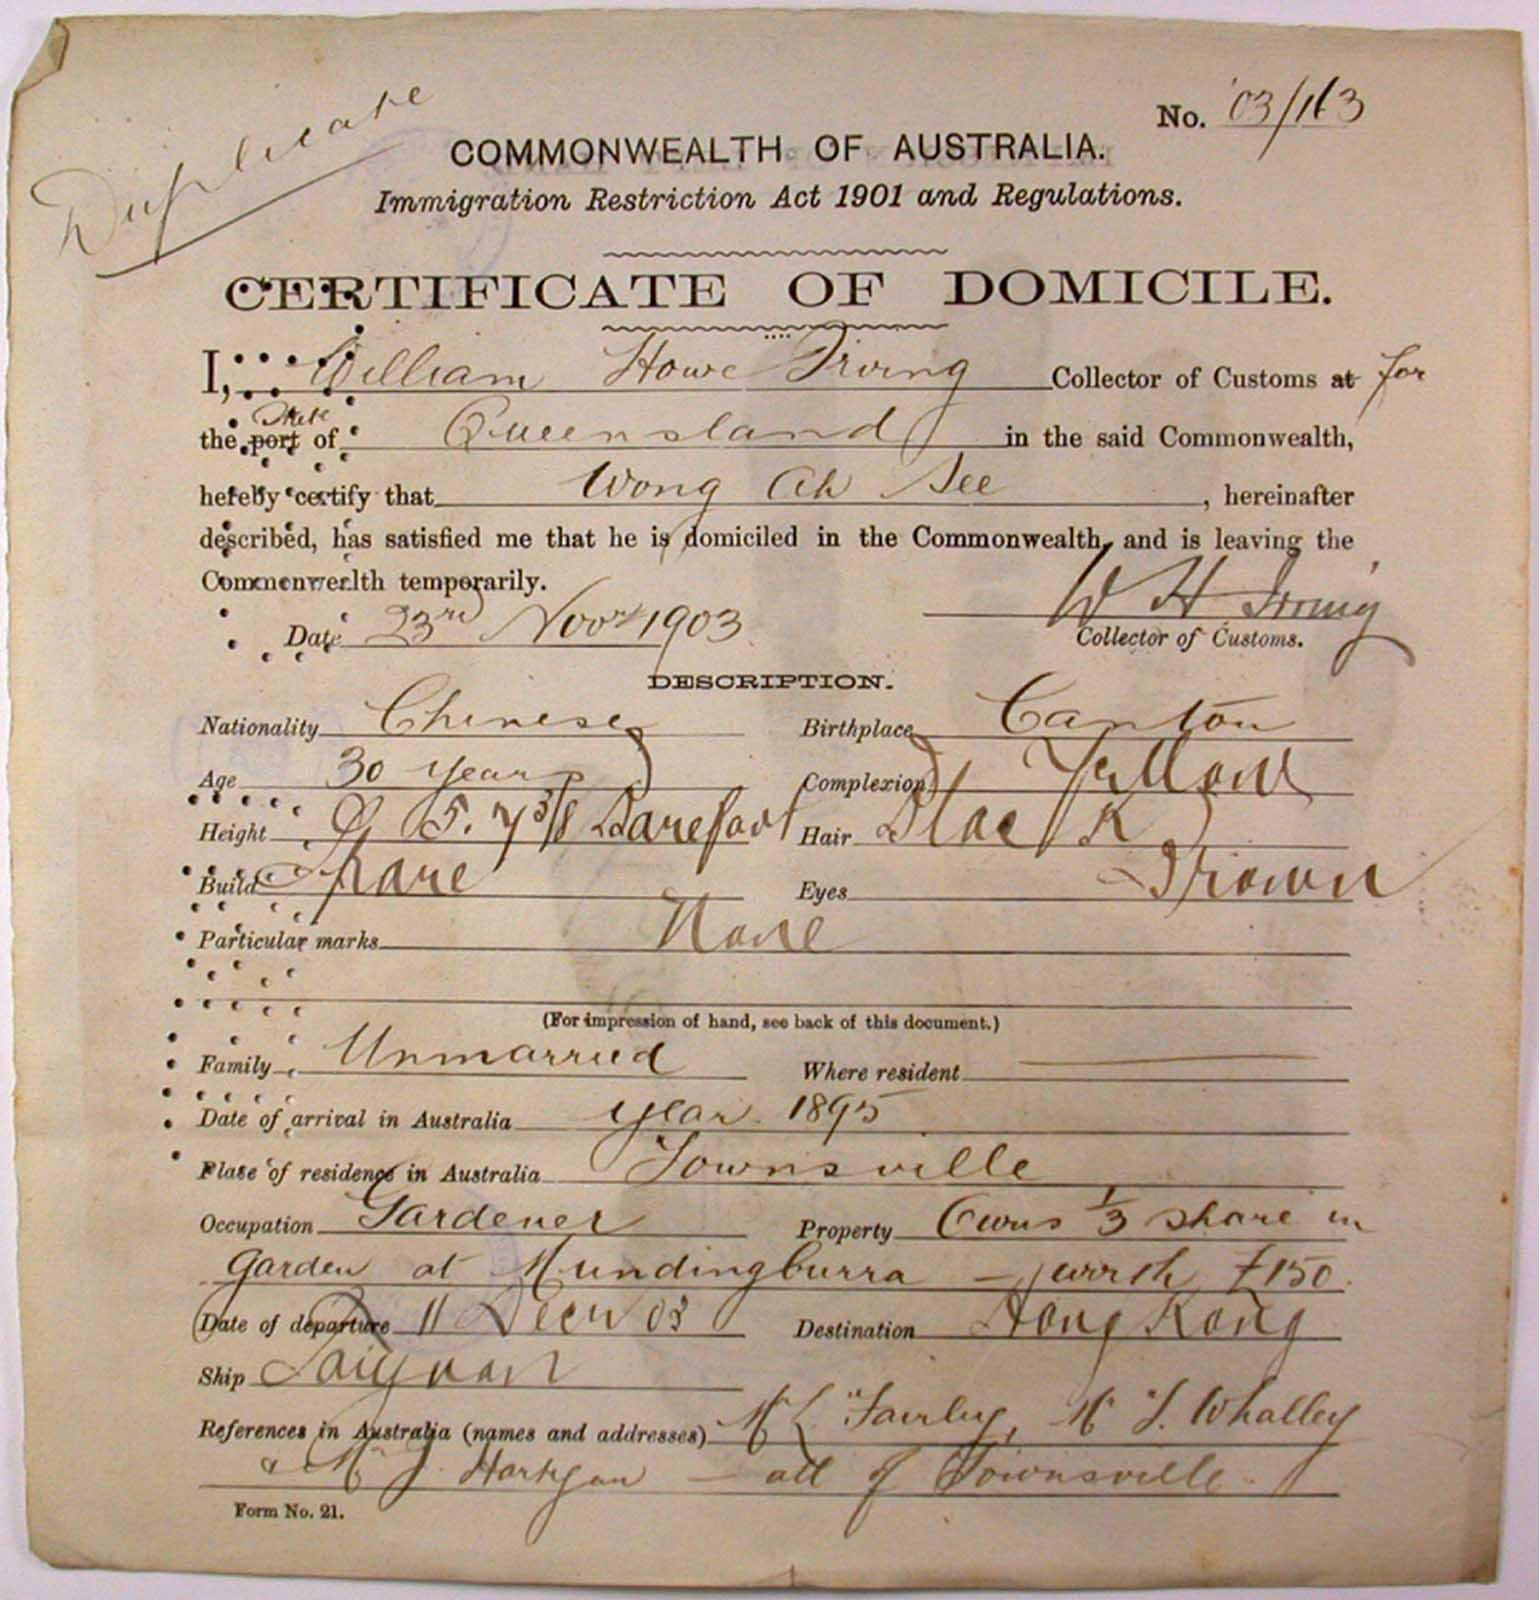 Duplicate
No. 03/113
COMMONWEALTH OF AUSTRALIA.
Immigration Restriction Act 1901 and Regulations.
CERTIFICATE OF DOMICILE.
I, William Howe Irving Collector of Customs at for
State
the port of Queensland in the said Commonwealth,
hereby certify that Wong Ah See, hereinafter
described, has satisfied me that he is domiciled in the Commonwealth, and is leaving the
Commonwealth temporarily.
W H Irving
Date 23rd Novr 1903 Collector of Customs.
DESCRIPTION.
Nationality Chinese Birthplace Canton
Age 30 years Complexion Yellow
Height 5. 7 3/8 Barefoot Hair Black
Build Spare Eyes Brown
Particular marks None
(For impression of hand, see back of this document.)
Family Unmarried Where resident
Date of arrival in Australia year 1895
Place of residence in Australia Townsville
Occupation Gardener Property Owns 1/3 share in
Garden at Mundingburra — worth £150.
Date of departure 11 Decr 03 Destination Hong Kong
Ship Taiyuan
References in Australia (names and addresses) Mr Fairley, Mr T. Whalley
& Mr J. Hartigan — all of Townsville.
Form No. 21.